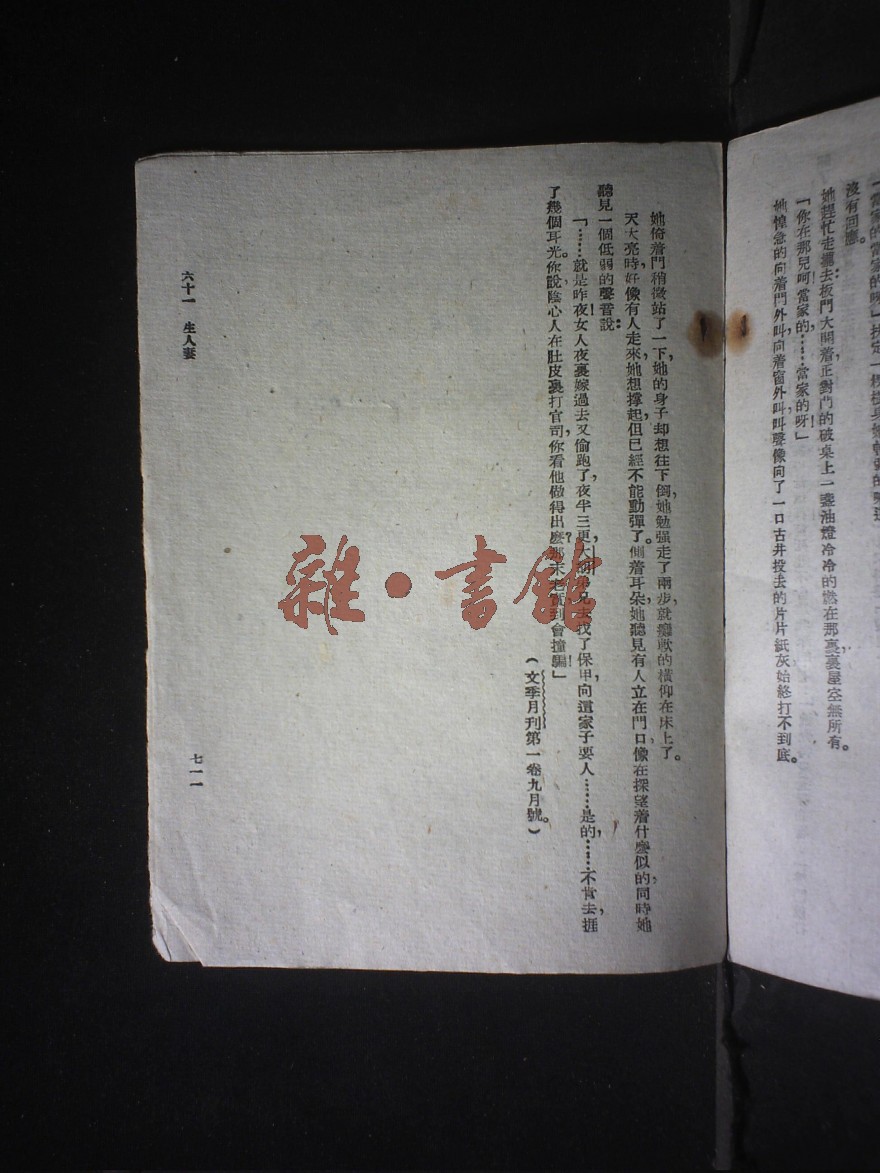 「當家的當家的呀」
沒有回應。
她趕忙走攏去，板門大開着，正對門的破桌上一盞油燈冷冷的燃在那裏，裏屋空無所有。
「你在那兒呵當家的！……當家的呀！」
她惶急的向着門外叫，向着窗外叫，叫聲像向了一口古井投去的片片紙灰，始終打不到底。
她倚着門稍微站了一下，她的身子却想往下倒，她勉强走了兩步，就癱軟的橫仰在床上了。
天大亮時，好像有人走來，她想撐起，但已經不能動彈了。側着耳朵，她聽見有人立在門口，像在探望着什麽似的，同時她
聽見一個低弱的聲音說：
「……就是昨夜！女人夜裏嫁過去又偷跑了，夜半三更，大胡步兄去找了保甲，向這家子要人……是的，……不肯去，捱
了幾個耳光。你說，陰心人在肚皮裏打官司，你看他做得出麽？那末老實，到會撞騙！」
（文季月刊第一卷九月號。）
六十一 生人妻
七一一
雜·書館